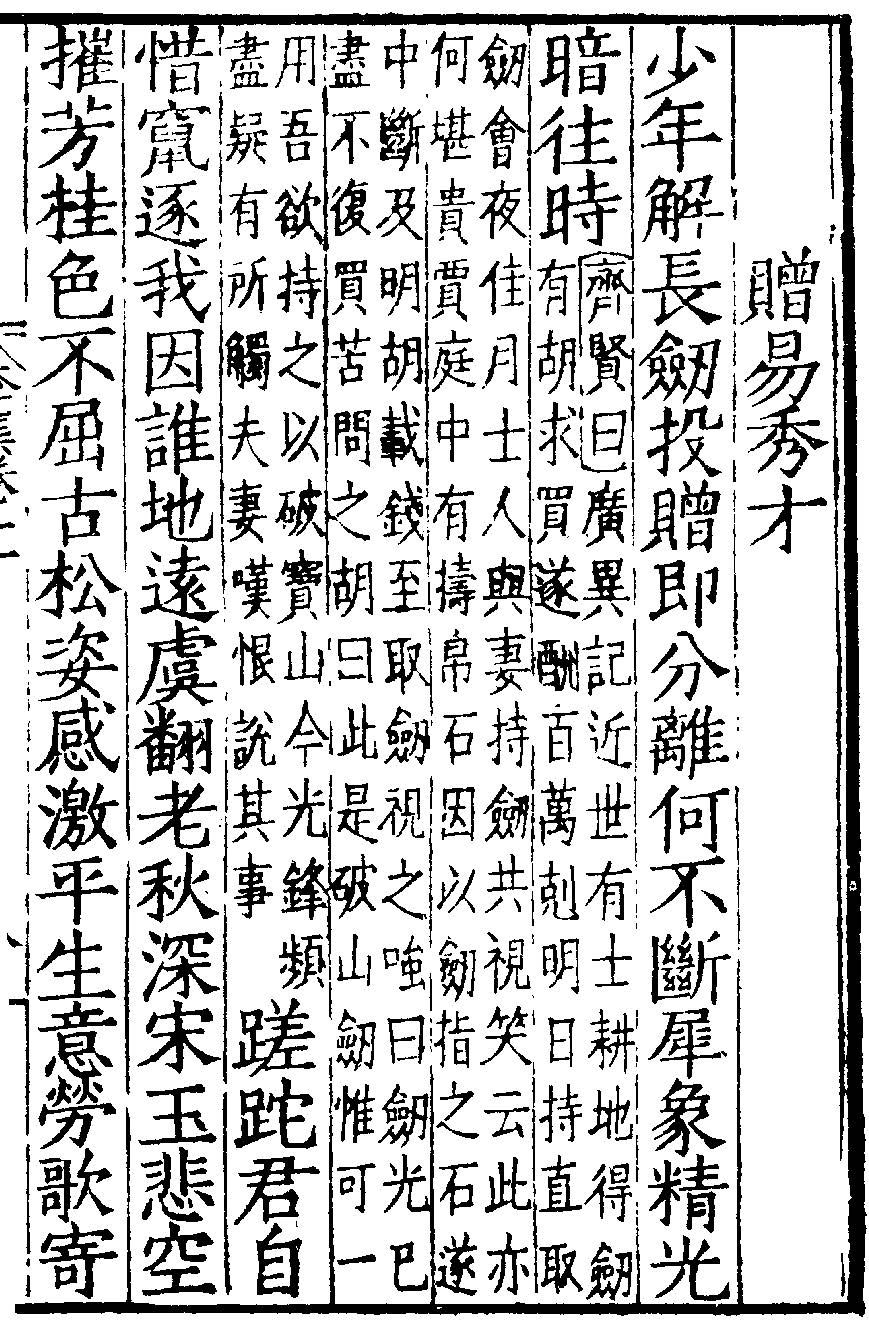 贈易秀才
少年解長劒投贈即分離何不斷犀象精光
暗往時
齊賢曰廣異記近世有士耕地得劒
有胡求買遂酬百萬剋明日持直取
劒會夜佳月士人與妻持劒共視笑云此亦
何堪貴賈庭中有擣帛石因以劒指之石遂
中斷及明胡載錢至取劒視之嗟曰劒光已
盡不復買苦問之胡曰此是破山劒惟可一
用吾欲持之以破寶山今光鋒頻
盡疑有所觸夫妻嘆恨說其事
蹉跎君自
惜竄逐我因誰地遠虞翻老秋深宋玉悲空
摧芳桂色不屈古松姿感激平生意勞歌寄